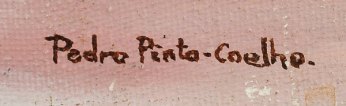 Pedro Pinto-Coelho.